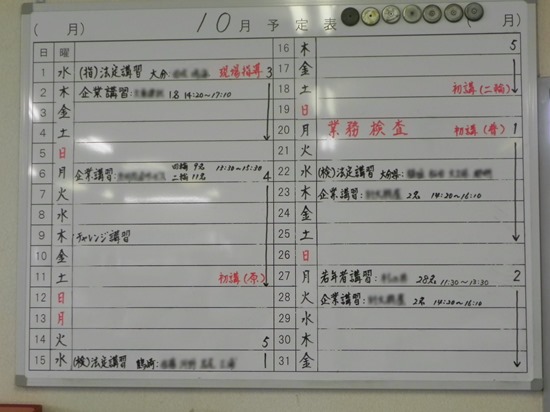 ( 月) 10月予定表 月)
日 曜
1 水 (指)法定講習 大分 現場指導 3
2 木 企業講習: 1名 14:20~17:10
3 金
4 土
5 日
6 月 企業講習: 四輪 9名 二輪 11名 13:30~15:30 4
7 火
8 水
9 木 チャレンジ講習
10 金
11 土 初講(原)
12 日
13 月
14 火 5
15 水 (検)法定講習 鶴崎:
16 木 5
17 金
18 土 初講(二輪)
19 日
20 月 業務検査 初講(普) 1
21 火
22 水 (検)法定講習 大分:
23 木 企業講習: 2名 14:20~16:10
24 金
25 土
26 日
27 月 若年者講習: 28名 11:30~13:30 2
28 火 企業講習: 2名 14:20~16:10
29 水
30 木
31 金